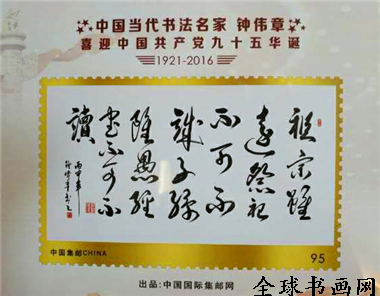 中国当代书法名家 钟伟章
喜迎中国共产党九十五华诞
1921-2016
祖宗虽
远祭祀
不可不
诚子孙
虽愚经
书不可不
读
丙申年
钟伟章书
中国集邮CHINA
95
出品：中国国际集邮网
全球书画网